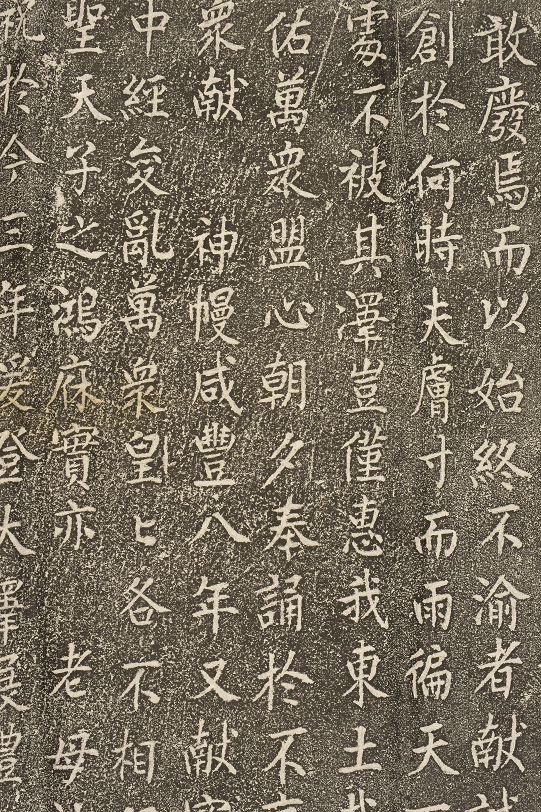 敢廢焉而以始終不渝者献
創於何時夫膚寸而雨徧天
處不被其澤豈僅惠我東土
佑萬衆盟心朝夕奉誦於不
衆献 神幔咸豐八年又献
中經變亂萬衆皇皇各不相
聖天子之鴻庥實亦 老母
祝於今三年爰登大